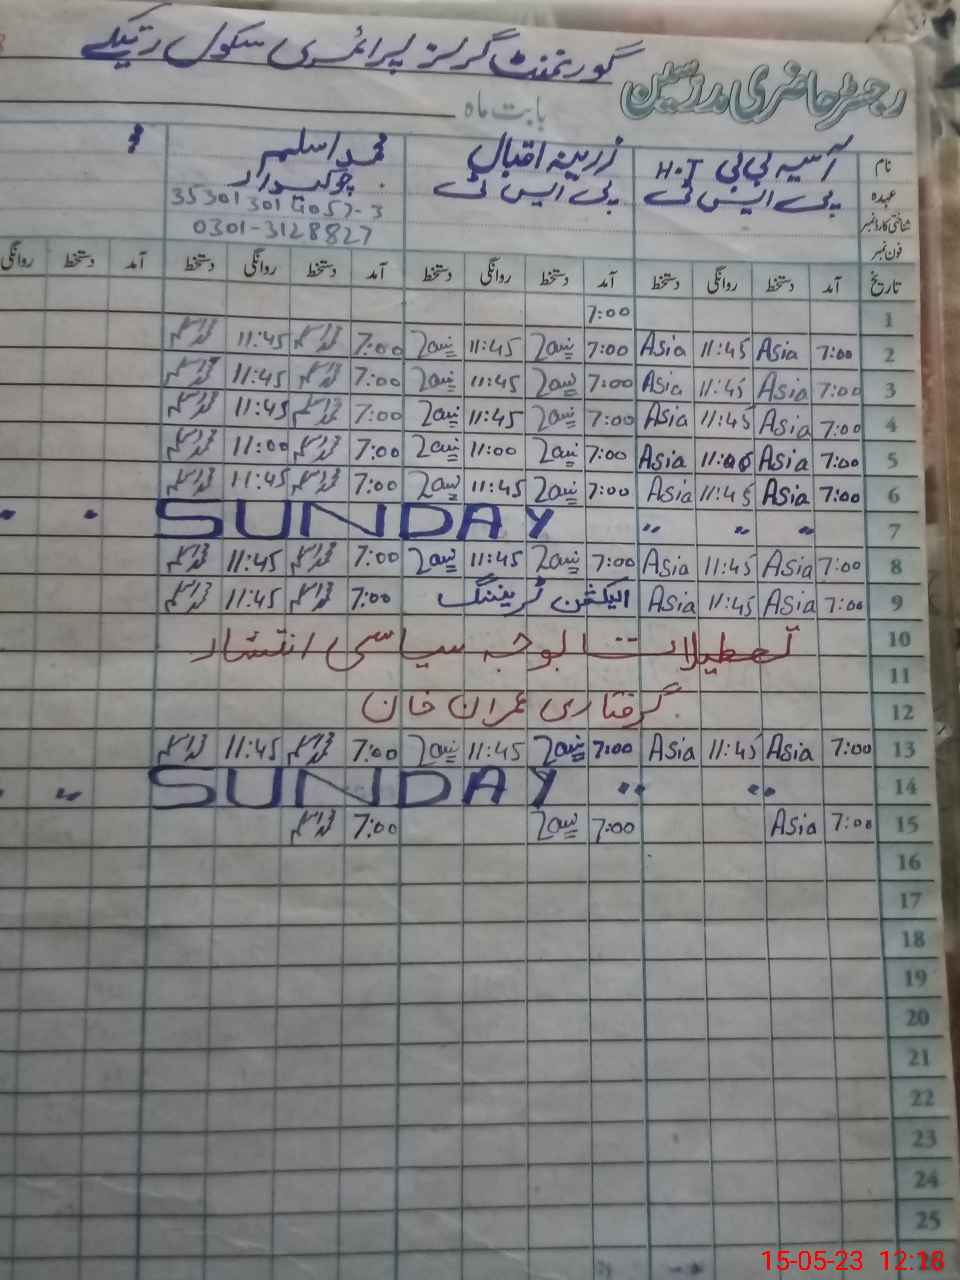 گورنمنٹ گرلز پرائمری سکول رتیکے
رجسٹر حاضری مدرسین
بابت ماہ
نام آسیہ بی بی H.T زرینہ اقبال محمد اسلم
عہدہ پی ایس ٹی پی ایس ٹی چوکیدار
شناختی کارڈ نمبر
فون نمبر 0301-3128827
تاریخ آمد دستخط روانگی دستخط آمد دستخط روانگی دستخط آمد دستخط روانگی دستخط آمد دستخط روانگی
1 7:00
2 7:00 Asia 11:45 Asia 7:00 11:45 7:00 11:45
3 7:00 Asia 11:45 Asia 7:00 11:45 7:00 11:45
4 7:00 Asia 11:45 Asia 7:00 11:45 7:00 11:45
5 7:00 Asia 11:00 Asia 7:00 11:00 7:00 11:00
6 7:00 Asia 11:45 Asia 7:00 11:45 7:00 11:45
7 SUNDAY
8 7:00 Asia 11:45 Asia 7:00 11:45 7:00 11:45
9 7:00 Asia 11:45 Asia الیکشن ٹریننگ 7:00 11:45
10 تعطیلات بوجہ سیاسی انتشار
11
12 گرفتاری عمران خان
13 7:00 Asia 11:45 Asia 7:00 11:45 7:00 11:45
14 SUNDAY
15 7:00 Asia 7:00 7:00
16
17
18
19
20
21
22
23
24
25
15-05-23 12:18